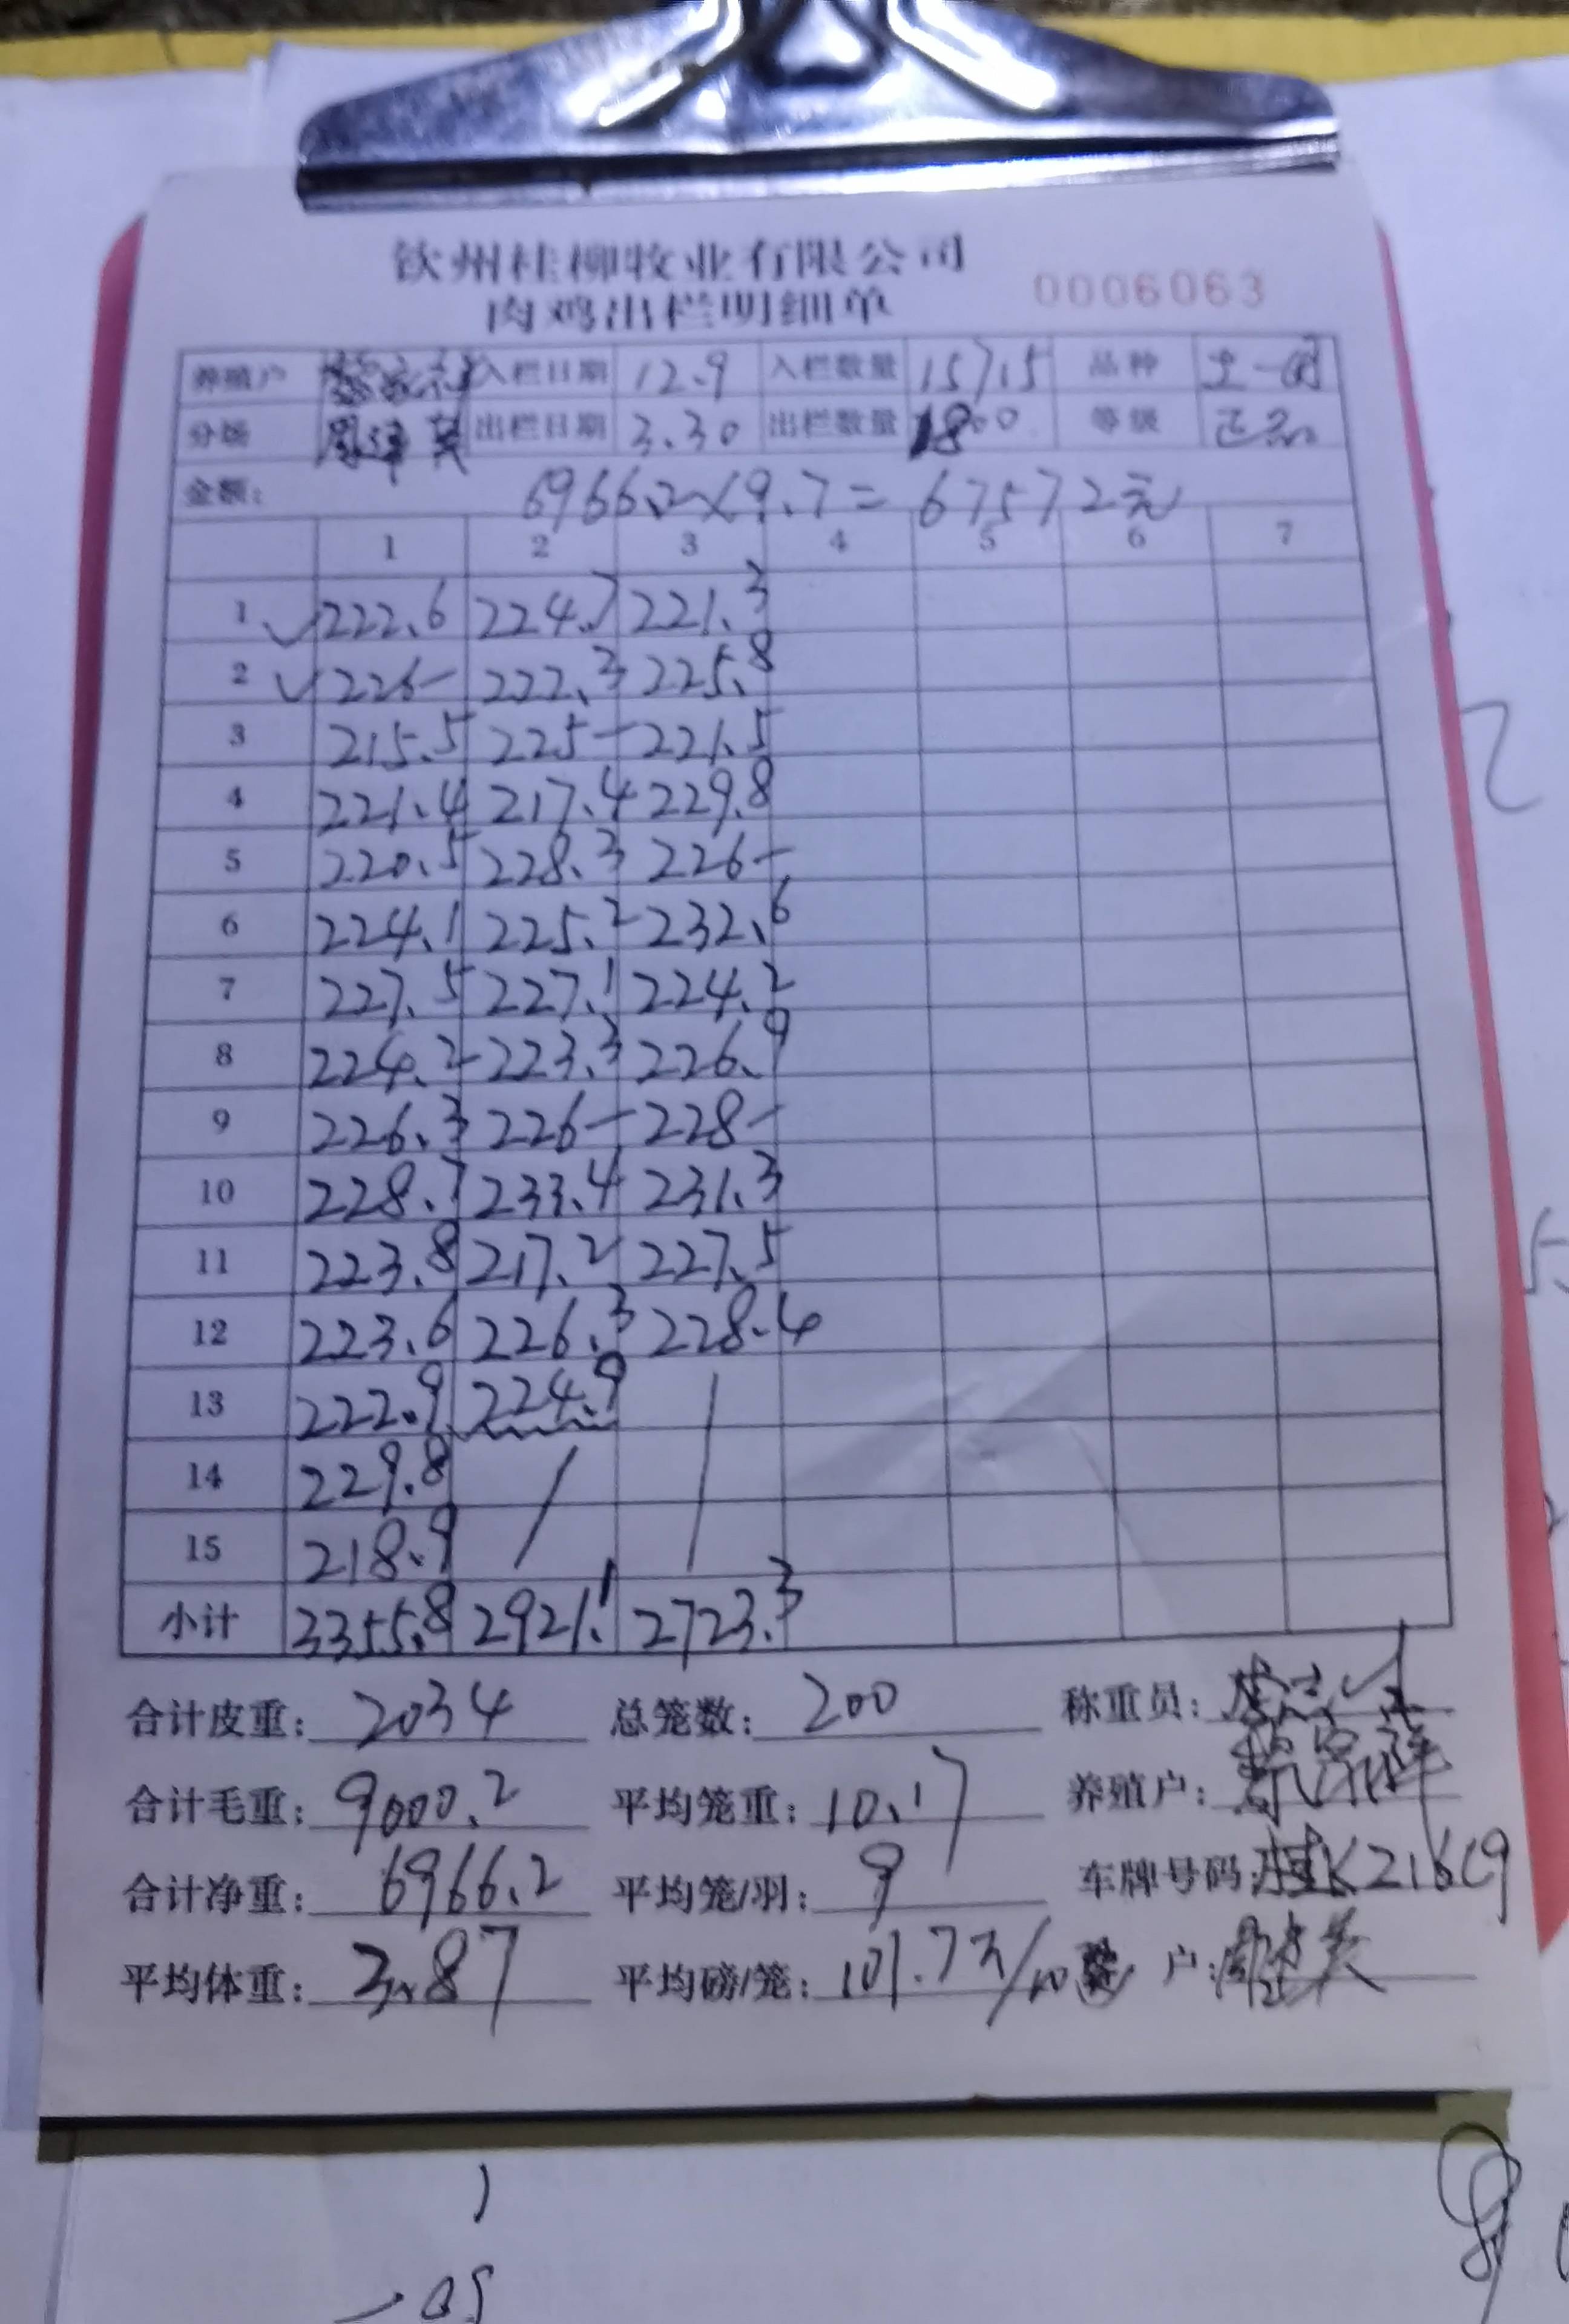 钦州桂柳牧业有限公司
肉鸡出栏明细单 0006063
养殖户 入栏日期 12.9 入栏数量 15715 品种 土一
分场 出栏日期 3.30 出栏数量 1800 等级
金额: 6966.2×9.7=67572元
1 2 3 4 5 6 7
1 222.6 224.7 221.3
2 226- 222.3 225.8
3 215.5 225- 221.5
4 221.4 217.4 229.8
5 220.5 228.3 226-
6 224.1 225.2 232.6
7 227.5 227.1 224.2
8 224.2 223.3 226.9
9 226.3 226- 228-
10 228.7 233.4 231.3
11 223.8 217.2 227.5
12 223.6 226.3 228.4
13 222.9 224.9
14 229.8
15 218.9
小计 3355.8 2921.1 2723.3
合计皮重: 2034 总笼数: 200 称重员:
合计毛重: 9000.2 平均笼重: 10.17 养殖户:
合计净重: 6966.2 平均笼/羽: 9 车牌号码: 桂K216C9
平均体重: 3.87 平均磅/笼: 101.7 户: